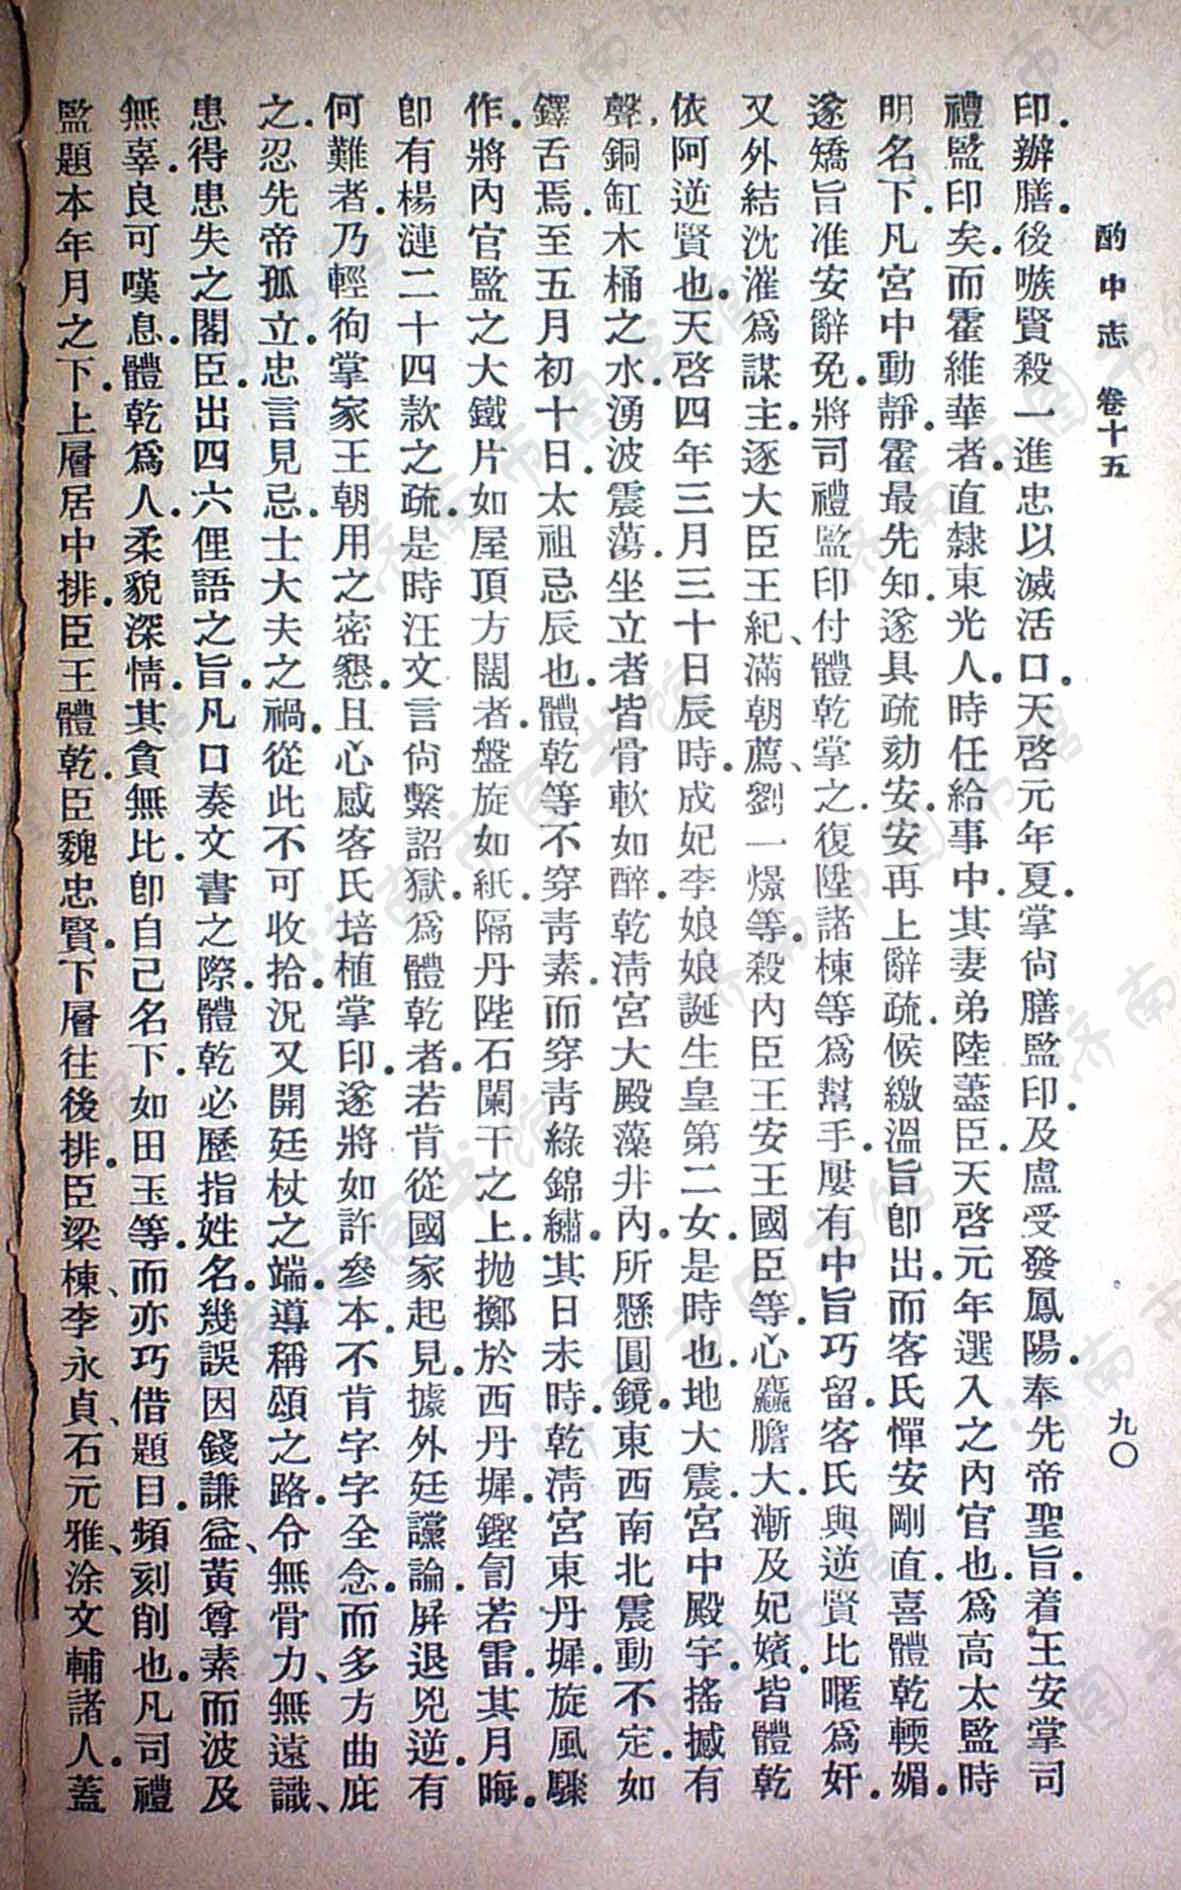 酌中志 卷十五 九〇
印.辦膳.後嗾賢殺一進忠以滅活口.天啓元年夏.掌尙膳監印.及盧受發鳳陽.奉先帝聖旨.着王安掌司
禮監印矣.而霍維華者.直隸東光人.時任給事中.其妻弟陸藎臣.天啓元年選入之內官也.爲高太監時
明名下.凡宮中動靜.霍最先知.遂具疏劾安.安再上辭疏.候繳溫旨卽出.而客氏憚安剛直.喜體乾輭媚.
遂矯旨准安辭免.將司禮監印付體乾掌之.復陞諸棟等爲幫手.屢有中旨巧留.客氏與逆賢比暱爲奸.
又外結沈㴶爲謀主.逐大臣王紀、滿朝薦、劉一燝等.殺內臣王安王國臣等.心麤膽大.漸及妃嬪.皆體乾
依阿逆賢也.天啓四年三月三十日辰時.成妃李娘娘誕生皇第二女.是時也.地大震.宮中殿宇.搖撼有
聲.銅缸木桶之水.湧波震蕩.坐立者皆骨軟如醉.乾淸宮大殿藻井內.所懸圓鏡.東西南北震動不定.如
鐸舌焉.至五月初十日.太祖忌辰也.體乾等不穿靑素.而穿靑綠錦繡.其日未時.乾淸宮東丹墀.旋風驟
作.將內官監之大鐵片如屋頂方闊者.盤旋如紙.隔丹陛石闌干之上.拋擲於西丹墀.鏗訇若雷.其月晦.
卽有楊漣二十四款之疏.是時汪文言尙繫詔獄.爲體乾者.若肯從國家起見.據外廷讜論.屛退兇逆.有
何難者.乃輕徇掌家王朝用之密懇.且心感客氏培植掌印.遂將如許參本.不肯字字全念.而多方曲庇
之.忍先帝孤立.忠言見忌.士大夫之禍.從此不可收拾.況又開廷杖之端.導稱頌之路.令無骨力、無遠識、
患得患失之閣臣.出四六俚語之旨.凡口奏文書之際.體乾必歷指姓名.幾誤因錢謙益、黃尊素而波及
無辜.良可嘆息.體乾爲人.柔貌深情.其貪無比.卽自己名下.如田玉等.而亦巧借題目.頻刻削也.凡司禮
監題本年月之下.上層居中排.臣王體乾.臣魏忠賢.下層往後排.臣梁棟、李永貞、石元雅、涂文輔諸人.蓋